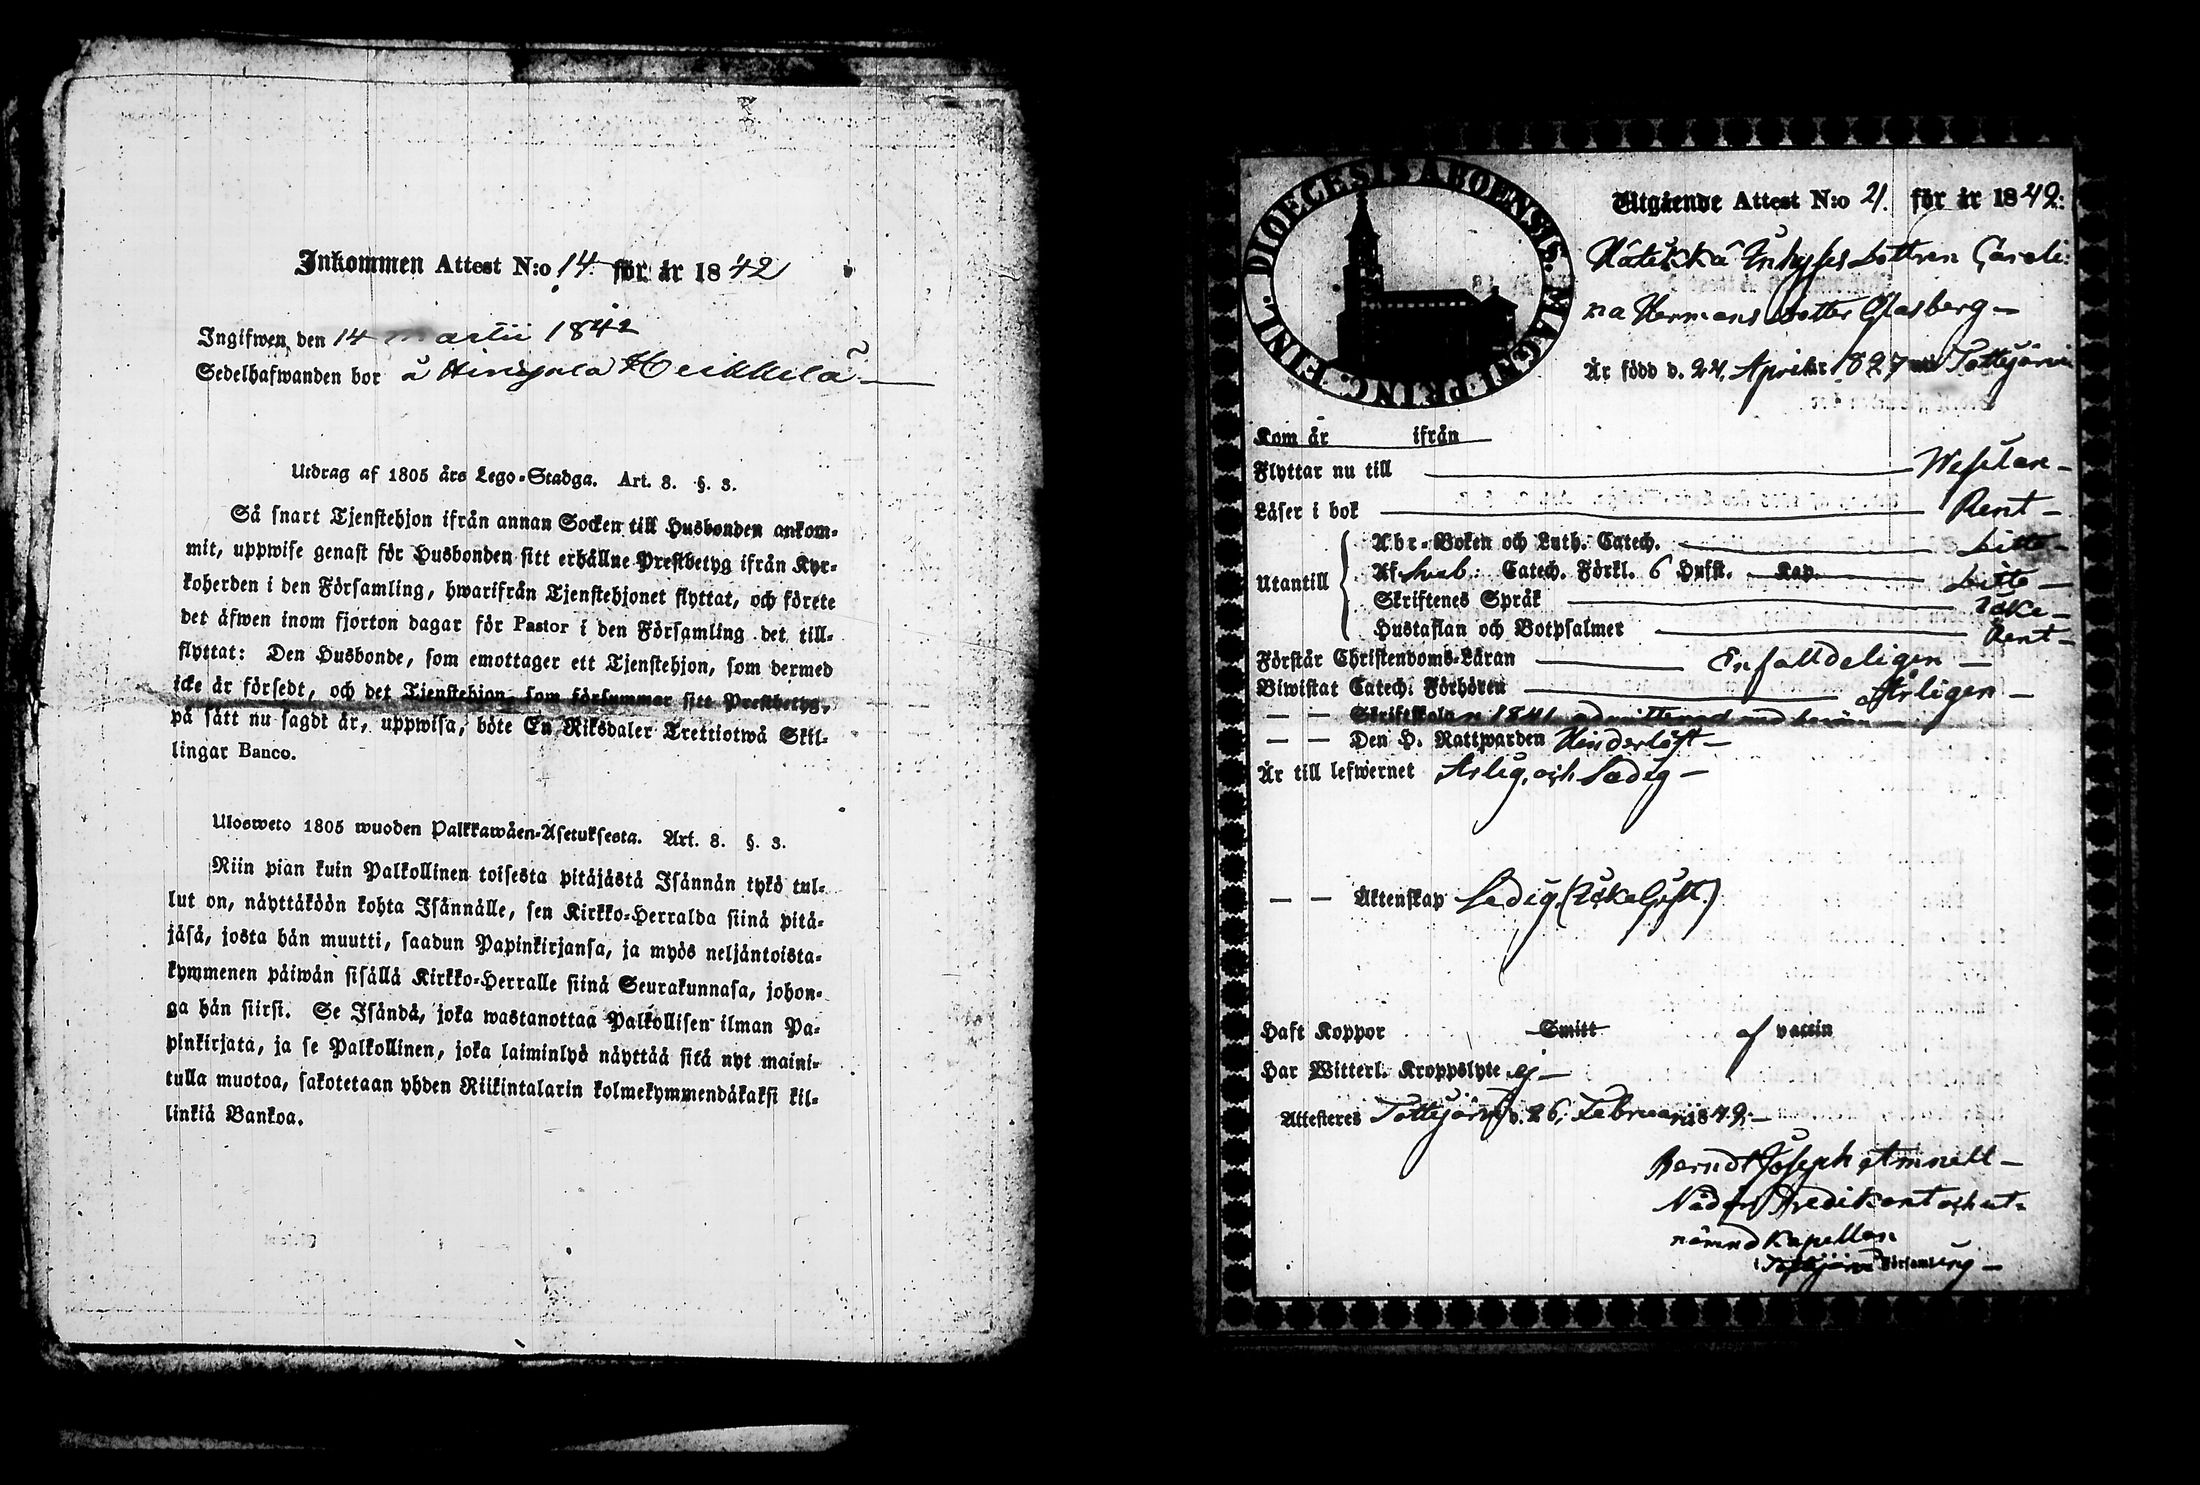 Inkommen Attest N:o 14. för år 1842
Ingifwen den 14 martii 1842
Sedelhafwanden bor å Hinsala Heikkilä
Utdrag af 1805 års Lego-Stadga. Art. 8. §. 3.
Så snart Tjenstehjon ifrån annan Socken till Husbonden ankom-
mit, uppwise genast för Husbonden sitt erhållne Prestbetyg ifrån Kyr-
koherden i den Församling, hwarifrån Tjenstehjonet flyttat, och förete
det äfwen inom fjorton dagar för Pastor i den Församling det till-
flyttat: Den Husbonde, som emottager ett Tjenstehjon, som dermed
icke är försedt, och det Tjenstehjon, som försummar sitt Prestbetyg,
på sätt nu sagdt är, uppwisa, böte En Riksdaler Trettiotwå Skil-
lingar Banco.
Ulosweto 1805 wuoden Palkkawäen-Asetuksesta. Art. 8. §. 3.
Niin pian kuin Palkollinen toisesta pitäjästä Isännän tykö tul-
lut on, näyttäköön kohta Isännälle, sen Kirkko-Herralda siinä pitä-
jäsä, josta hän muutti, saadun Papinkirjansa, ja myös neljäntoista-
kymmenen päiwän sisällä Kirkko-Herralle siinä Seurakunnasa, johon-
ga hän siirsi. Se Isändä, joka wastanottaa Palkollisen ilman Pa-
pinkirjata, ja se Palkollinen, joka laiminlyö näyttää sitä nyt maini-
tulla muotoa, sakotetaan yhden Riikintalarin kolmekymmendäkaksi kil-
linkiä Bankoa.
DIOECESIS ABOENSIS. MAGNI PRINC. FINL.
Utgående Attest N:o 21. för år 1842:
Inhyses Dottren Caroli:
na Hermans dotter Glasberg
Är född d. 24. April 1827 Tottijärvi
Kom år ifrån
Flyttar nu till Wesilax
Läser i bok Rent
Utantill Abc-Boken och Luth. Catech. Ditto
Af Sveb: Catech. Förkl. 6 Hufst. Kap. Ditto
Skriftenes Språk Icke
Hustaflan och Botpsalmer Rent
Förstår Christendoms-Läran Enfalldeligen
Biwistat Catech. Förhören Årligen
— — Skriftskolan 1841 admitterad
— — Den H. Nattwarden Hinderlöst
Är till lefwernet Ärlig, och Sedig
— — Äktenskap Ledig.
Haft Koppor Smitt af vaccin
Har Witterl. Kroppslyte ej
Attesteres Tottijärvi d. 26. Februarii 1842:
Berndt Joseph Amnell
Nådårs Predikant och ut-
nämnd Kapellan
i Tottijärvi Församling